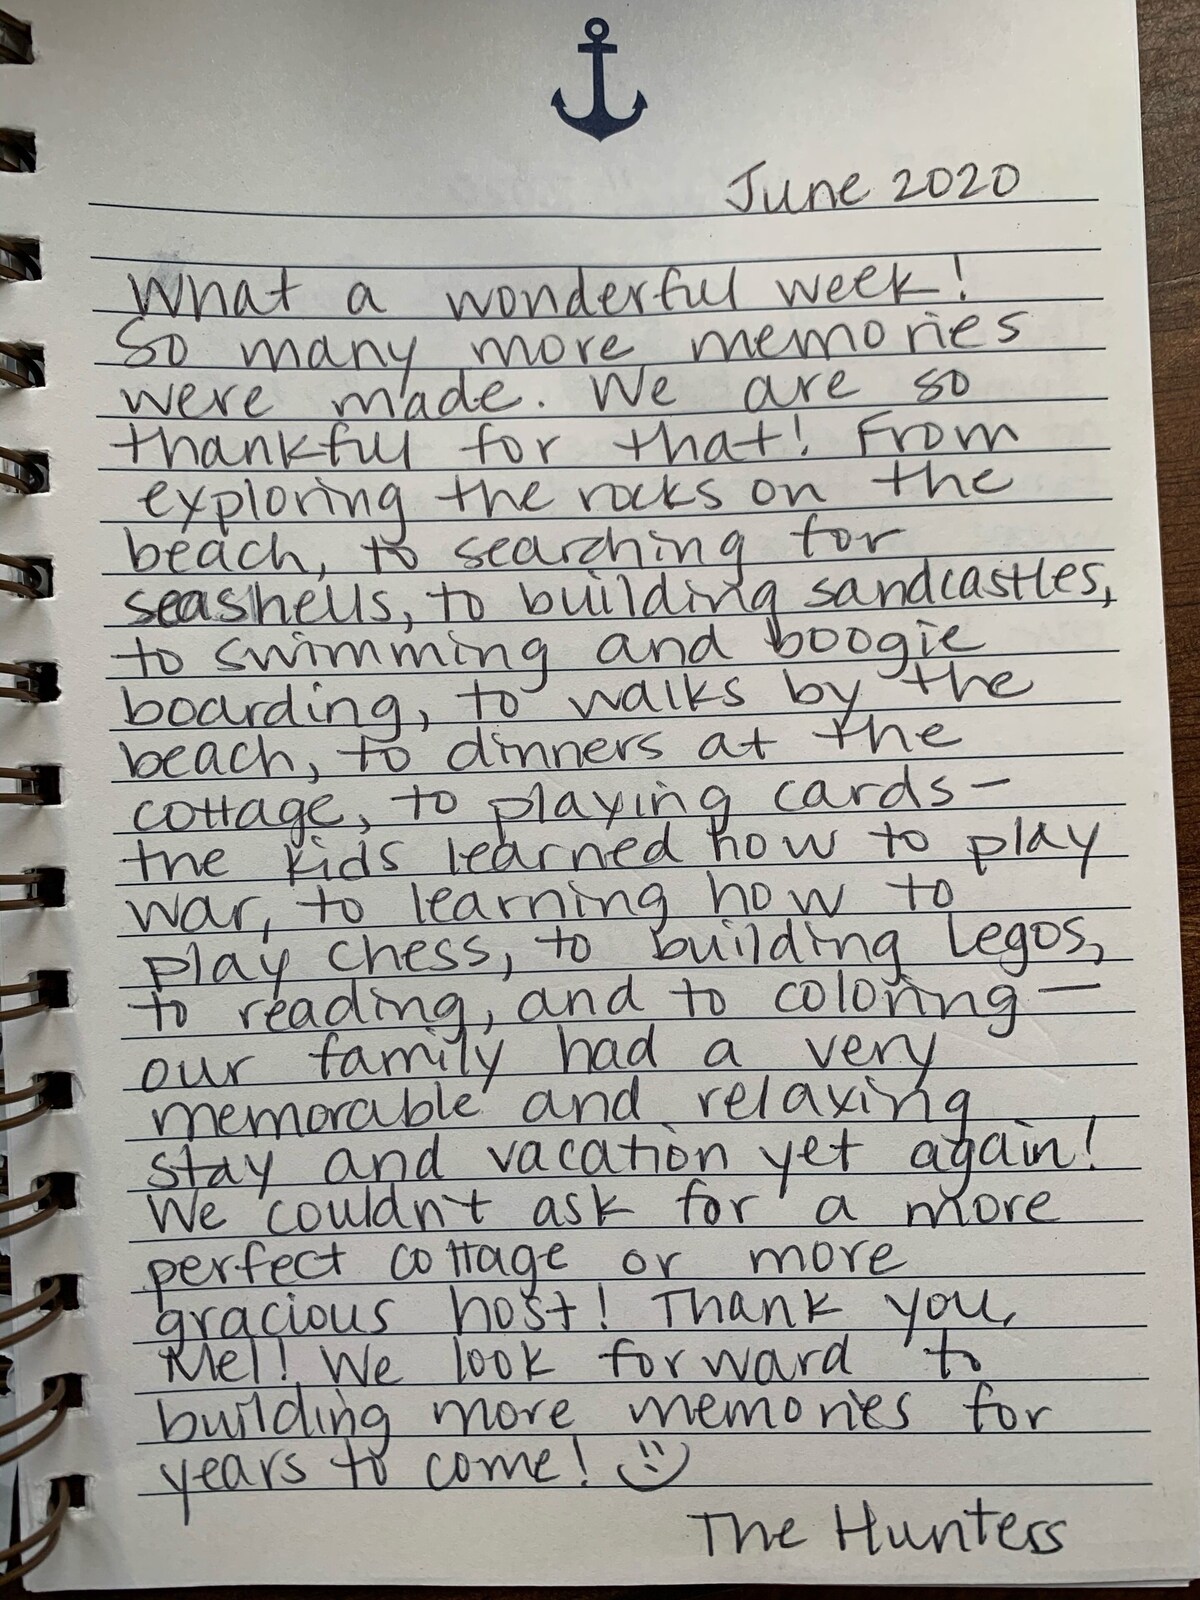 June 2020
What a wonderful week!
So many more memories
were made. We are so
thankful for that! From
exploring the rocks on the
beach, to searching for
seashells, to building sandcastles,
to swimming and boogie
boarding, to walks by the
beach, to dinners at the
cottage, to playing cards—
the kids learned how to play
war, to learning how to
play chess, to building Legos,
to reading, and to coloring—
our family had a very
memorable and relaxing
stay and vacation yet again!
We couldn't ask for a more
perfect cottage or more
gracious host! Thank you,
Mel! We look forward to
building more memories for
years to come! :)
The Hunters